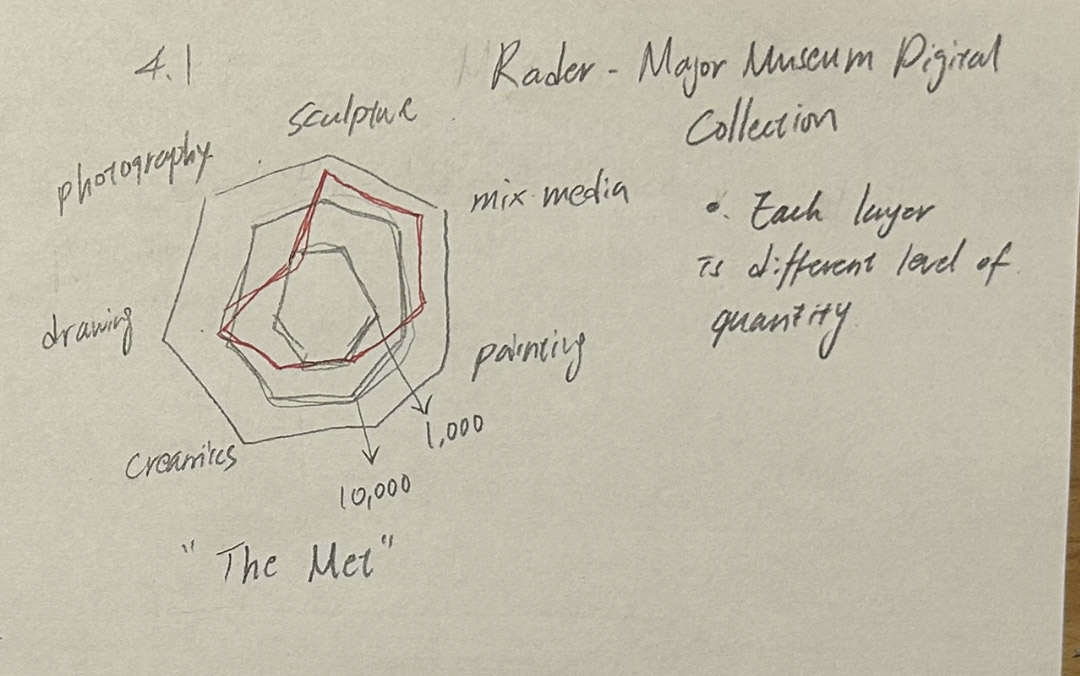 4.1
Rader - Major Museum Digital
Collection
sculpture
photography
mix media
• Each layer
is different level of
quantity
drawing
painting
1,000
Creamics
10,000
"The Met"